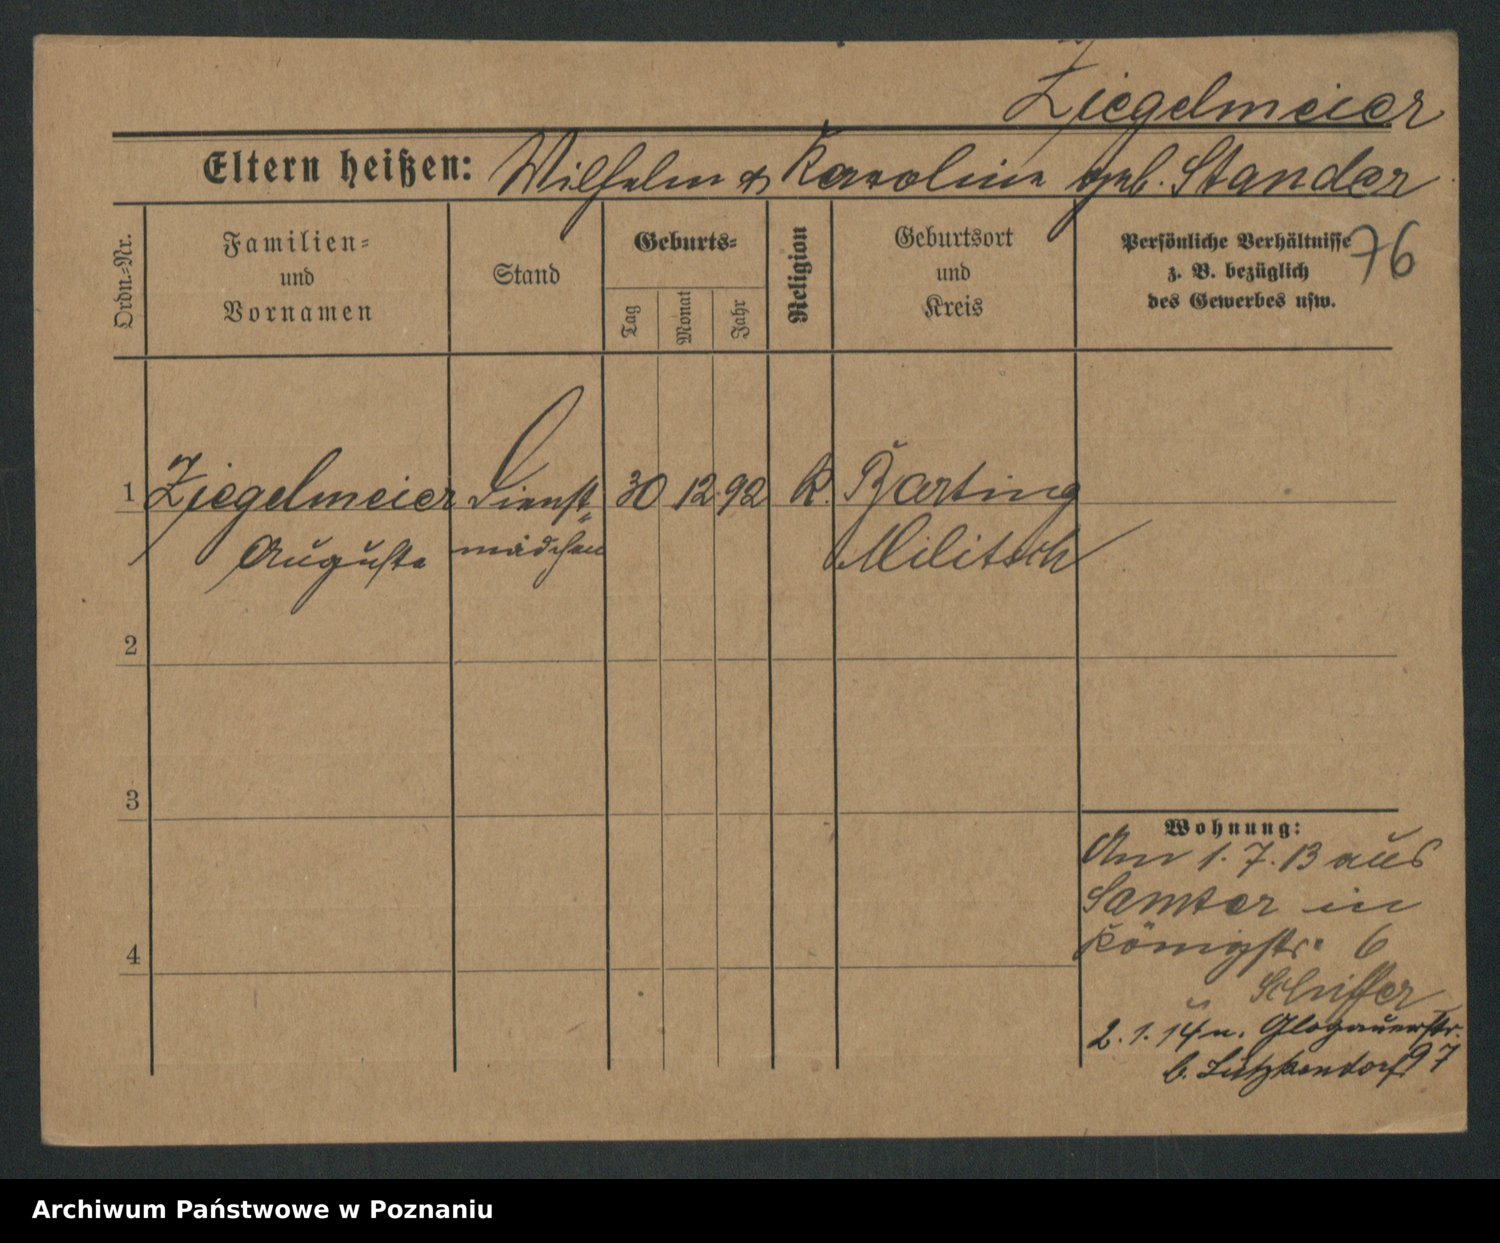 Ziegelmeier
Eltern heißen: Wilhelm & Karoline geb. Stander
76
Ordn.=Nr.
Familien=
und
Vornamen
Stand
Geburts=
Tag
Monat
Jahr
Religion
Geburtsort
und
Kreis
Persönliche Verhältnisse
z. B. bezüglich
des Gewerbes usw.
1 Ziegelmeier Dienst= 30 12. 92 K. Barting
Auguste mädchen Militsch
2
3
4
Wohnung:
Am 1. 7. 13 aus
Samter in
Königstr. 6
Schiffer
2. 1. 14 n. Glogauerstr.
b. Lützkendorf 97
Archiwum Państwowe w Poznaniu